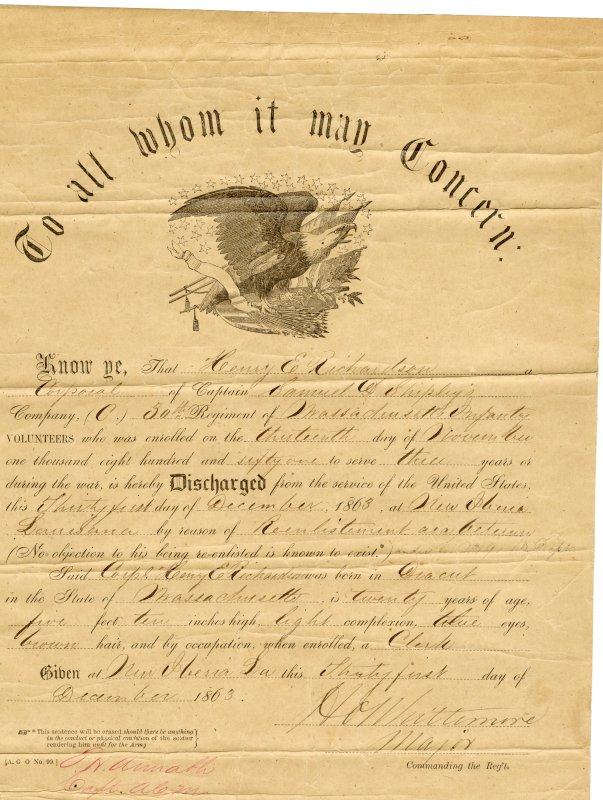 To all whom it may Concern:
Know ye, That Henry E Richardson a
Corporal of Captain Samuel G Shipley's
Company, (C,) 30th Regiment of Massachusetts Infantry
VOLUNTEERS who was enrolled on the thirteenth day of November
one thousand eight hundred and sixty one to serve three years or
during the war, is hereby Discharged from the service of the United States,
this Thirty first day of December, 1863, at New Iberia
Louisiana by reason of Reenlistment as a Veteran
(No objection to his being re-enlisted is known to exist.*
Said Corpl Henry E Richardson was born in Dracut
in the State of Massachusetts, is twenty years of age,
five feet ten inches high, light complexion, blue eyes,
brown hair, and by occupation, when enrolled, a Clerk
Given at New Iberia La this Thirty first day of
December 1863.
* This sentence will be erased should there be anything
in the conduct or physical condition of the soldier
rendering him unfit for the Army
Major
[A. G. O No. 99.]
Commanding the Reg't.
Capt.